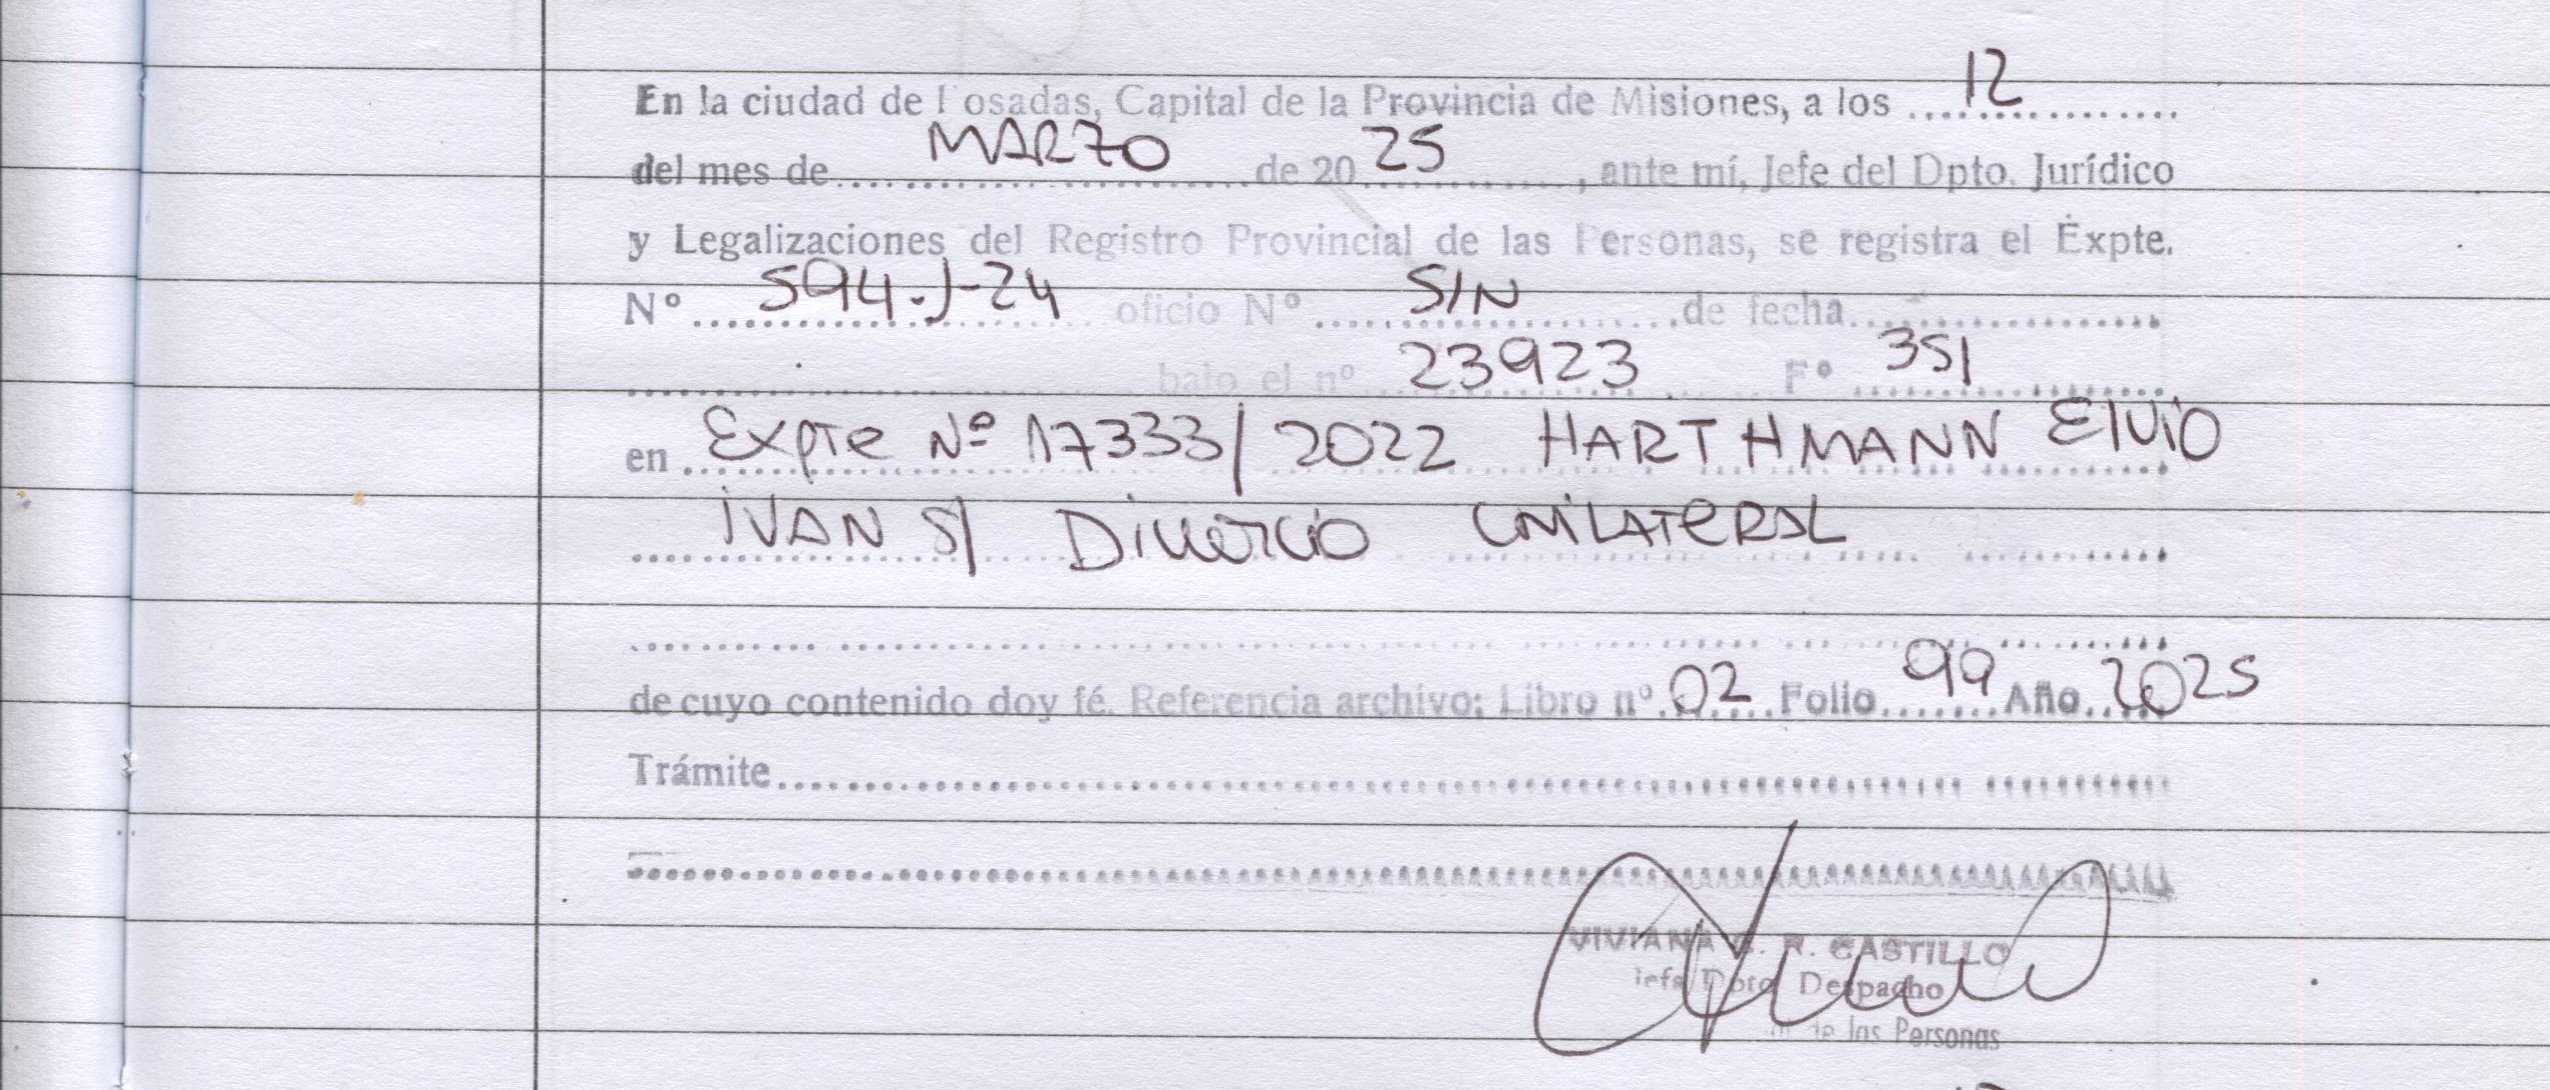 En la ciudad de Posadas, Capital de la Provincia de Misiones, a los 12
del mes de MARZO de 20 25, ante mí, Jefe del Dpto. Jurídico
y Legalizaciones del Registro Provincial de las Personas, se registra el Expte.
Nº 594-J-24 oficio Nº S/N de fecha
bajo el nº 23923 Fº 351
en Expte Nº 17333/2022 HARTHMANN Elvio
IVAN S/ Divorcio UNILATERAL
de cuyo contenido doy fé. Referencia archivo: Libro nº 02 Folio 99 Año 2025
Trámite
VIVIANA R. CASTILLO
Jefa Dpto Despacho
de las Personas